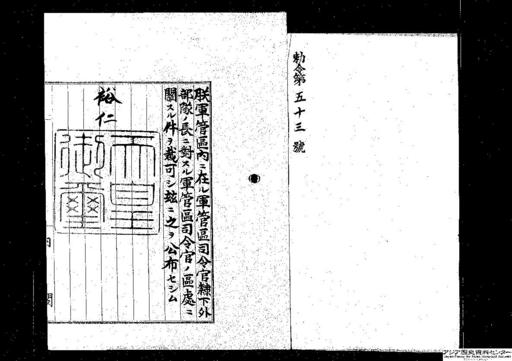 勅令第五十三號
朕軍管區內ニ在ル軍管區司令官隸下外
部隊ノ長ニ對スル軍管區司令官ノ區處ニ
關スル件ヲ裁可シ茲ニ之ヲ公布セシム
裕仁
天皇
御璽
內閣
アジア歴史資料センター